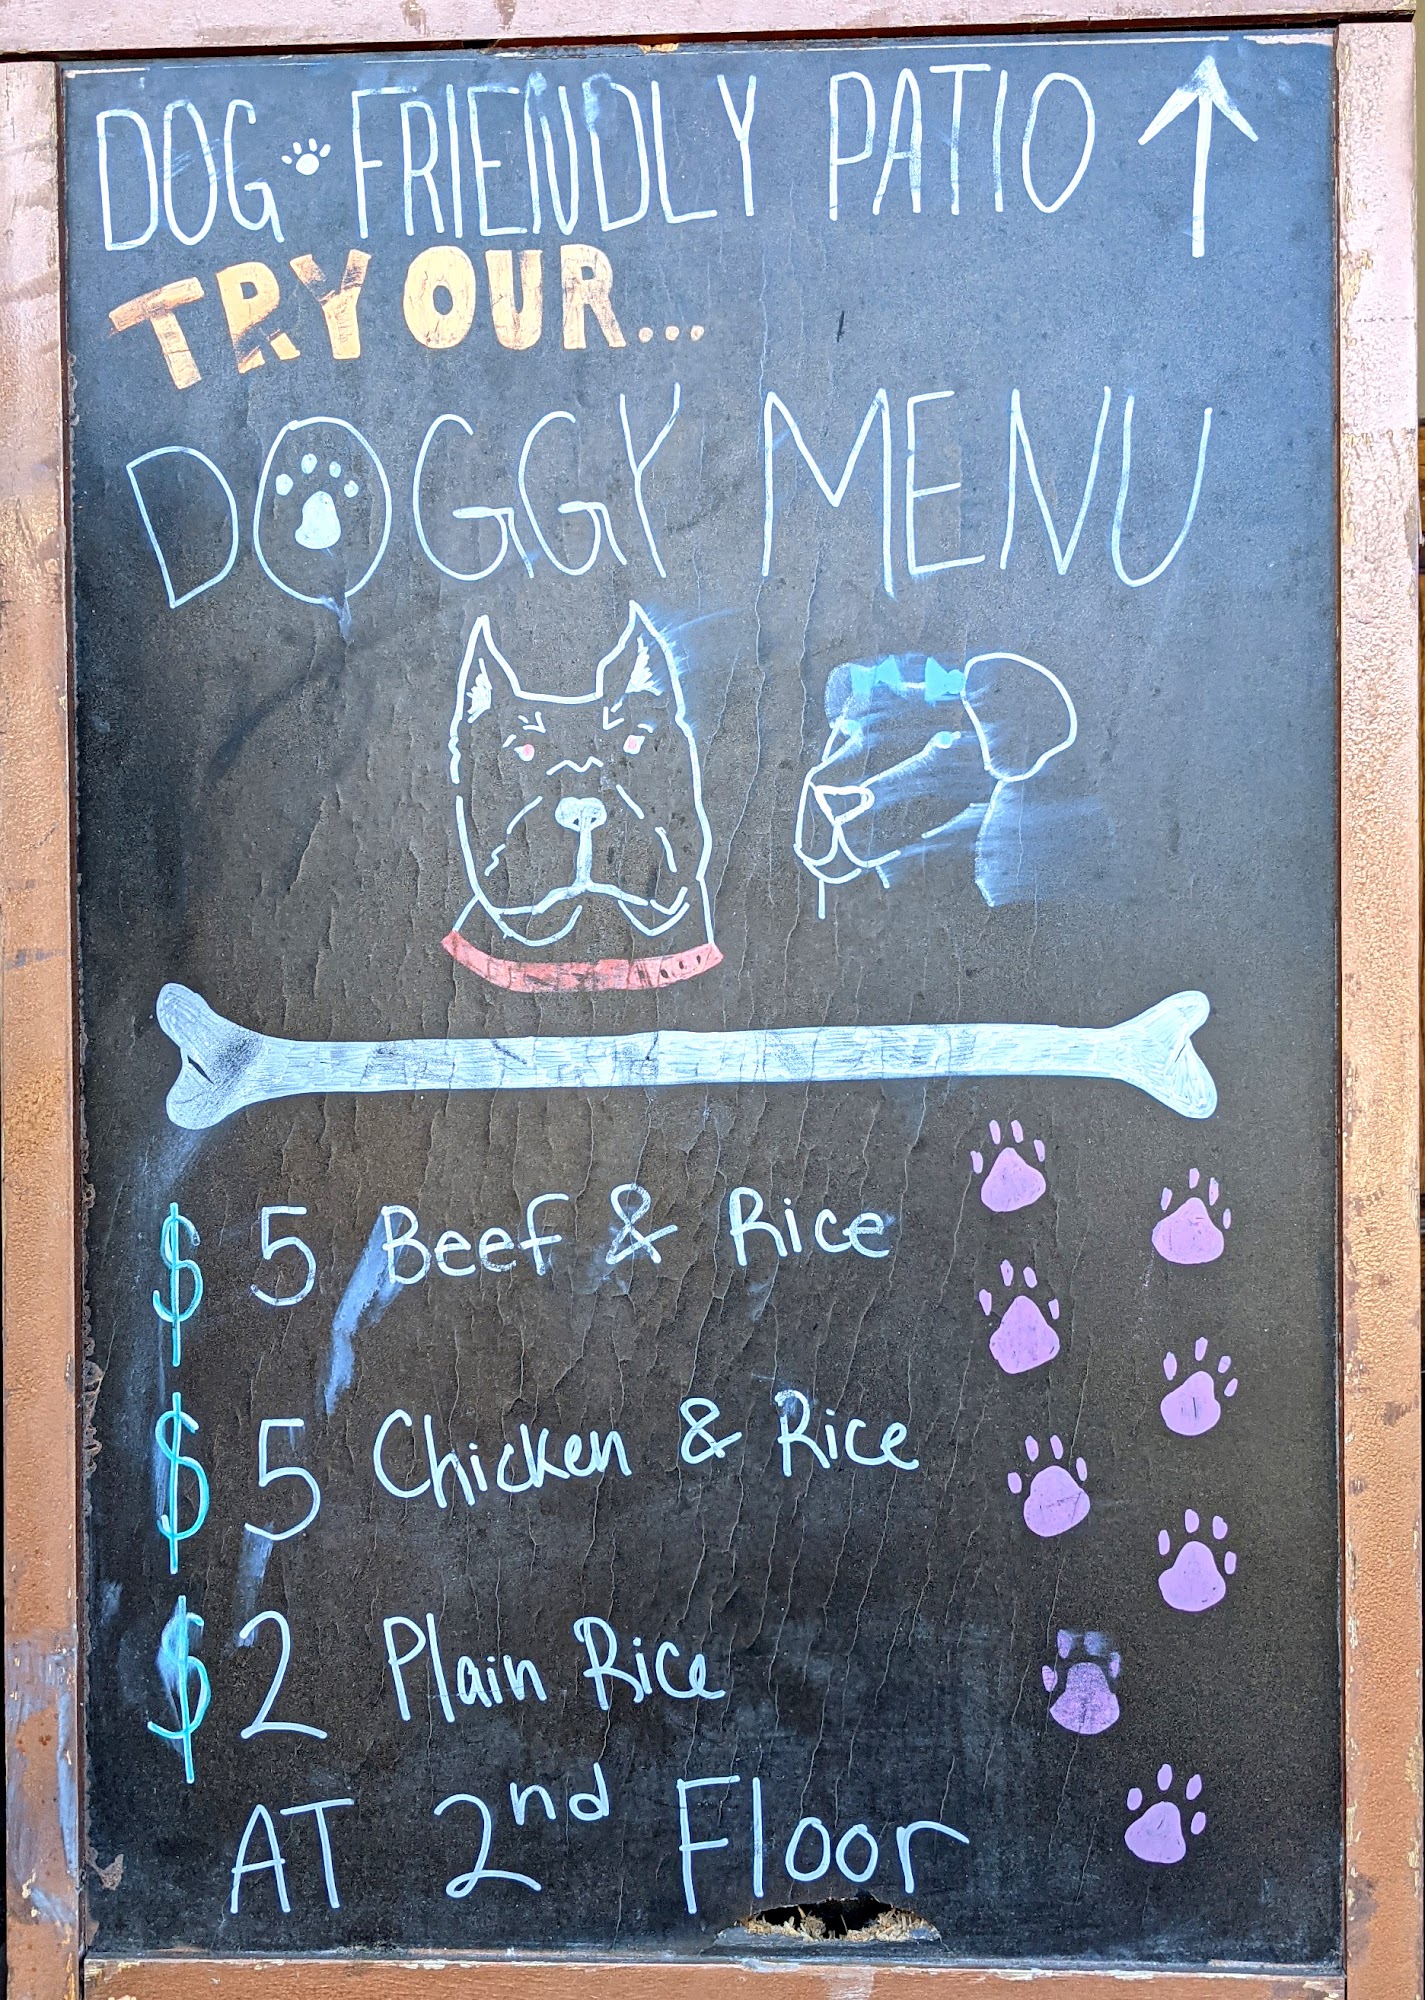 DOG FRIENDLY PATIO ↑
TRY OUR...
DOGGY MENU
$ 5 Beef & Rice
$ 5 Chicken & Rice
$ 2 Plain Rice
AT 2nd Floor